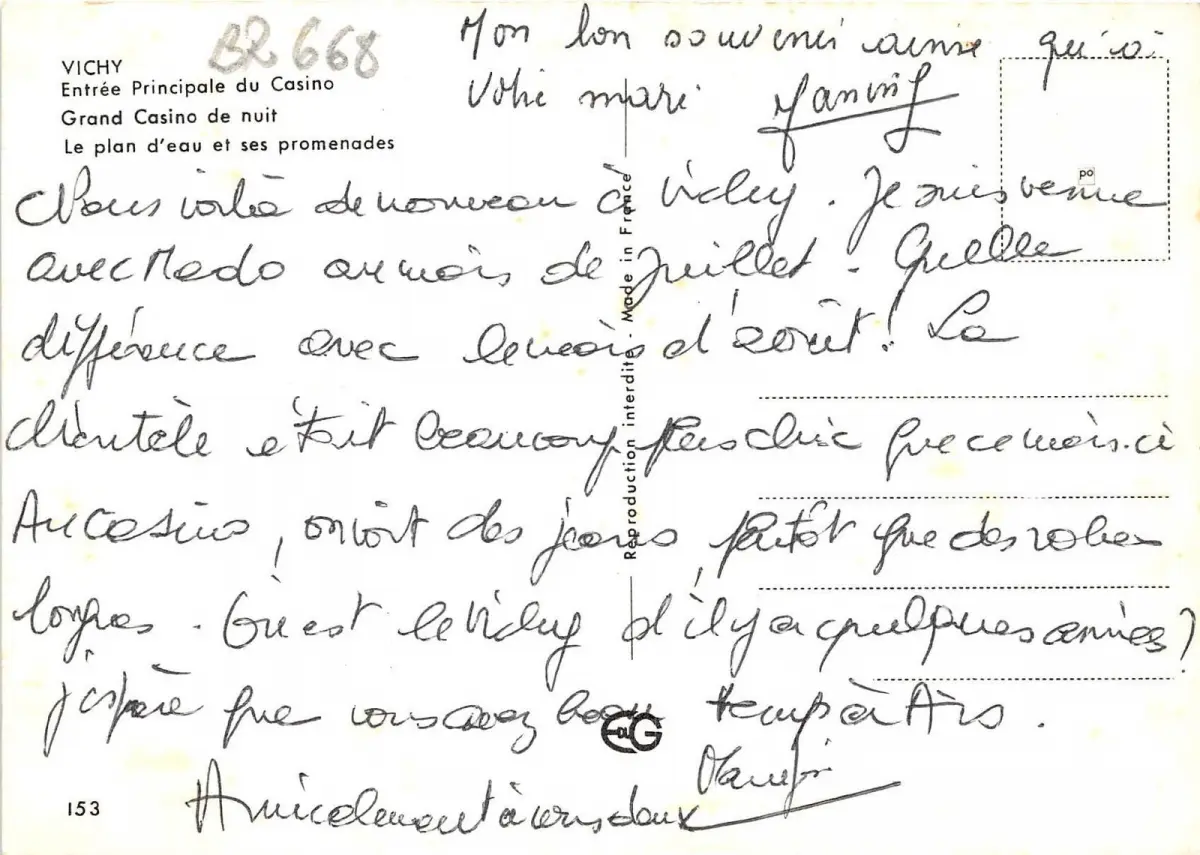 B2 668
VICHY
Entrée Principale du Casino
Grand Casino de nuit
Le plan d'eau et ses promenades
Mon bon souvenir ainsi qu'à
Votre mari
Nous voilà de nouveau à Vichy. Je suis venue
avec Mado au mois de Juillet. Quelle
différence avec le mois d'août! La
clientèle était beaucoup plus chic que ce mois-ci
Au Casino, on voit des jeans, plutôt que des robes
longues. Où est le Vichy d'il y a quelques années?
j'espère que vous avez beau temps à Ars.
Amicalement à vous deux
Reproduction interdite. Made in France
po
EDUG
153